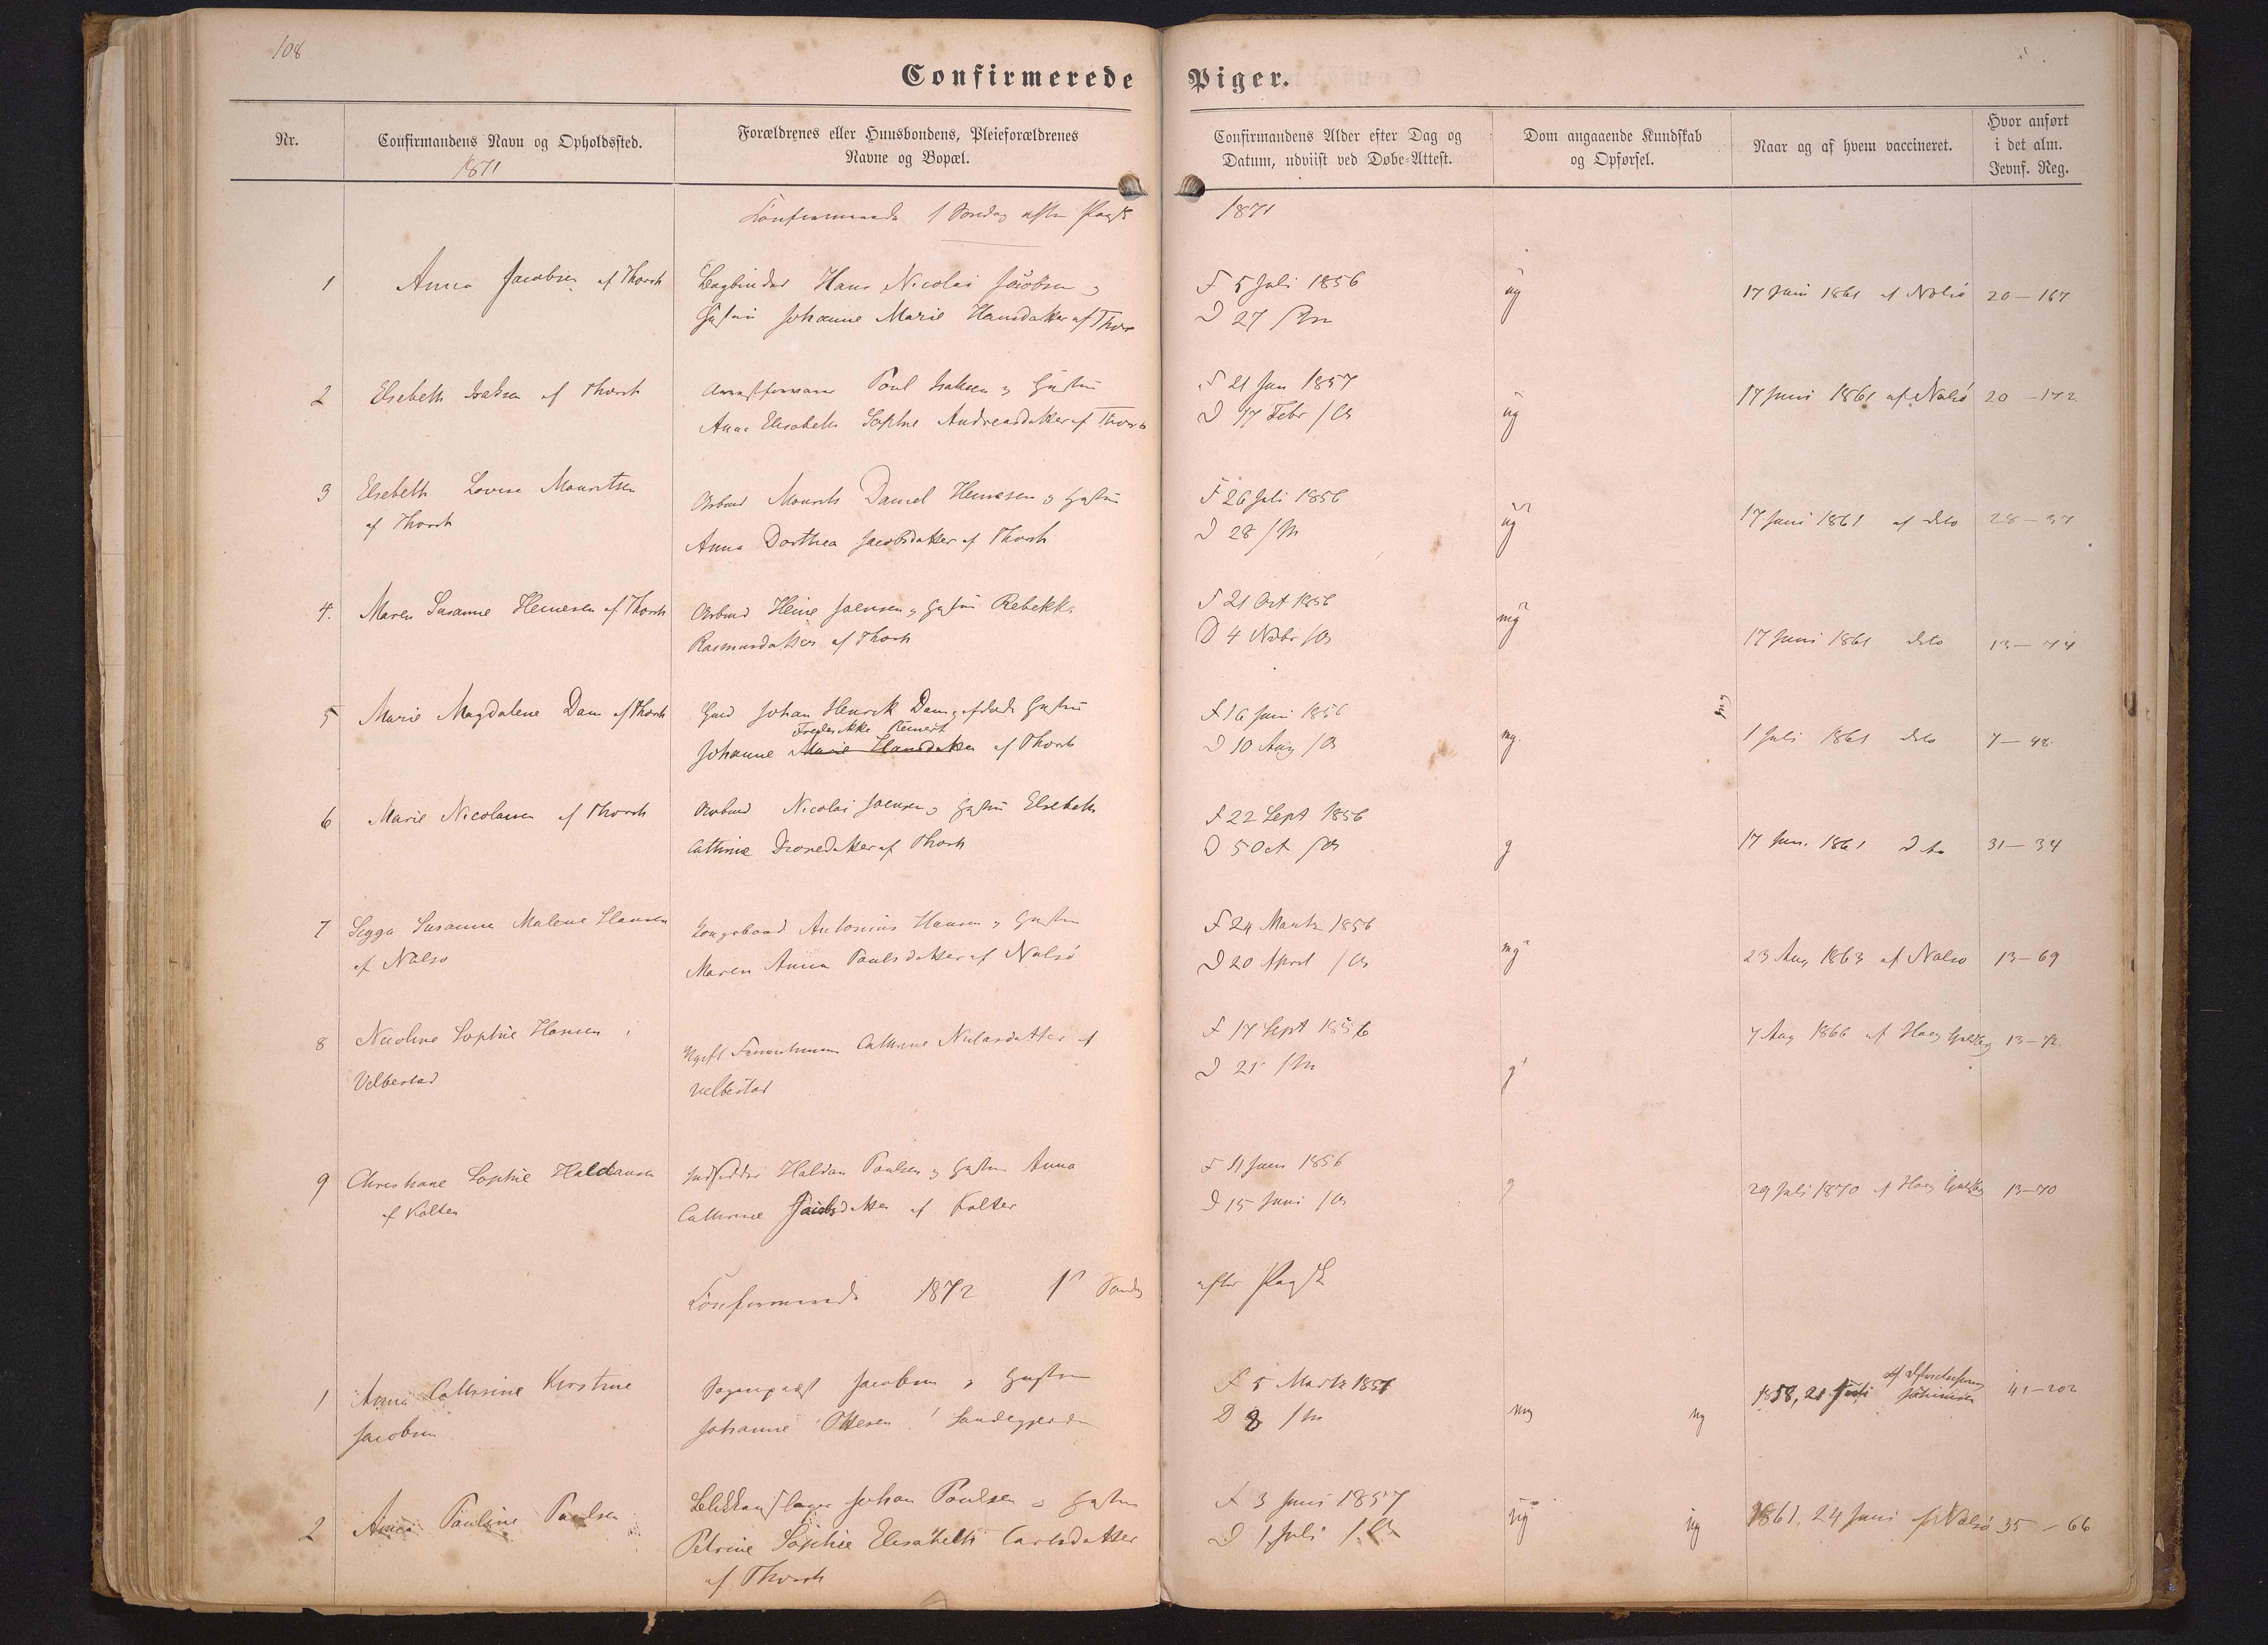 108
Confirmerede Piger.
Nr.
Confirmandens Navn og Opholdssted.
1871
Forældrenes eller Huusbondens, Pleieforældrenes
Navne og Bopæl.
Confirmandens Alder efter Dag og
Datum, udviist ved Døbe-Attest.
Dom angaaende Kundskab
og Opførsel.
Naar og af hvem vaccineret.
Hvor anført
i det alm.
Jevnf. Reg.
Confirmerede 1 Søndag efter Paaske 1871
1 Anna Jacobsen af Thorsh Bogbinder Hans Nicolai Jacobsen og F 5 Juli 1856 ug 17 Juni 1861 af Nolsö 20 - 167
Hustru Johanne Marie Hansdatter af Thors D 27 /
2 Elsebeth Isaksen af Thorsh Poul Isaksen og Hustru F 21 Jan 1857 ug 17 Juni 1861 af Nolsö 20 - 172
Anna Elisabeth Sophie Andreasdatter af Thorsh D 17 Febr /
3 Elsebeth Lovise Mouritsen Mourits Daniel Heinesen og Hustru F 26 Juli 1856 ug 17 Juni 1861 af dito 28 - 37
af Thorsh Anna Dorthea Jacobsdatter af Thorsh D 28 /
4. Maren Susanne Heinesen af Thorsh Heine Joensen og Hustru Rebekka F 21 Oct 1856 mg 17 Juni 1861 dito 13 - 74
Rasmusdatter af Thorsh D 4 Novbr /
5 Marie Magdalene Dam af Thorsh Johan Henrik Dam og Hustru F 16 Juni 1856 mg. mg 1 Juli 1861 dito 7 - 48
Frederikke
Johanne Marie Hansdatter af Thorsh D 10 Aug /
6 Marie Nicolaisen af Thorsh Nicolai Joensen og Hustru Elsebeth F 22 Sept 1856 g 17 Jun. 1861 dito 31 - 34
Cathrine af Thorsh D 5 Oct /
7 Sigga Susanne Malene Hansen Antonius Hansen og Hustru F 24 Marts 1856 mg 23 Aug 1863 af Nolsö 13 - 69
af Nolsö Maren Anna Paulsdatter af Nolsö D 20 April /
8 Nicoline Sophie Hansen i Ugift Cathrine af F 17 Sept 1856 g 7 Aug 1866 af 13 - 72
Velbestad Velbestad D 21 /
9 Christiane Sophie Haldansen Indsidder Haldan Poulsen og Hustru Anna F 11 Juni 1856 g 29 Juli 1870 af 13 - 70
af Kolter Cathrine Jacobsdatter af Kolter D 15 Juni /
Confirmerede 1872 1 Søndag efter Paaske
1 Anna Cathrine Kirstine Sognepræst Jacobsen og Hustru F 5 Marts 1857 mg mg 1858, 21 Juli 41 - 202
Jacobsen Johanne Ottesen i Sandegjerde D 8 /
2 Anna Pauline Poulsen Johan Poulsen og Hustru F 3 Juni 1857 ug ug 1861, 24 Juni af Nolsö 35 - 66
Petrine Sophie Elisabeth Carlsdatter D 1 Juli /
af Thorsh